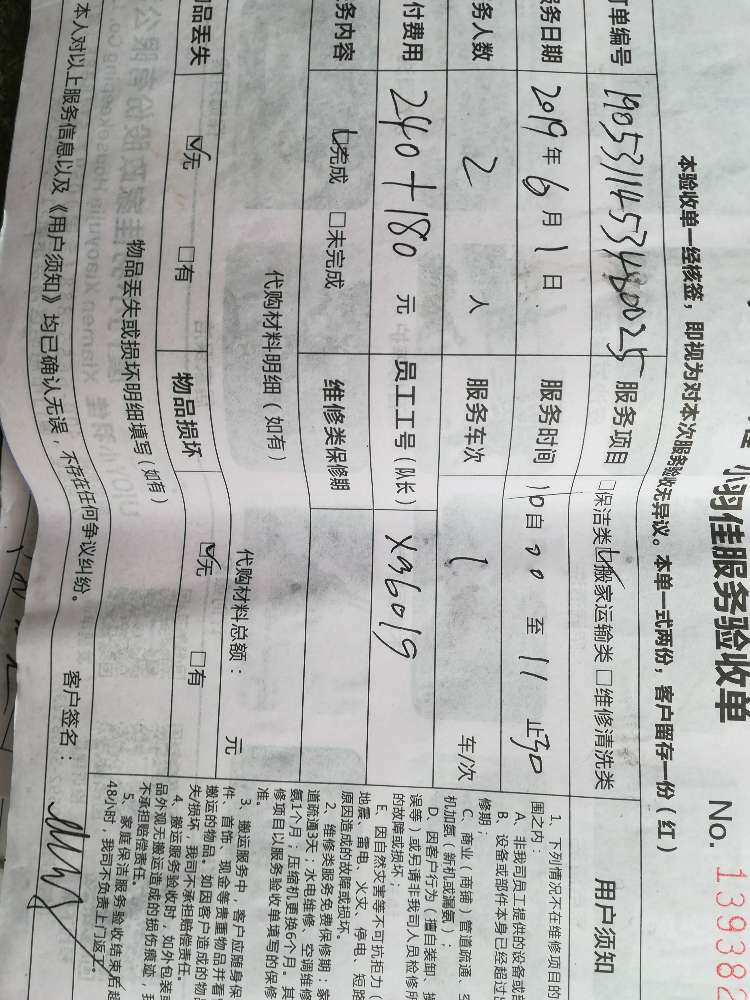 小羽佳服务验收单
No. 139382
本验收单一经核签，即视为对本次服务验收无异议。本单一式两份，客户留存一份（红）
单编号 1905311453480025 服务项目 □保洁类 ☑搬家运输类 □维修清洗类
务日期 2019年6月1日 服务时间 10自00至11止30
务人数 2 人 服务车次 1 车/次
付费用 240+180 元 员工工号（队长） xm6019
务内容 ☑完成 □未完成 维修类保修期
代购材料明细（如有） 代购材料总额： 元
品丢失 ☑无 □有 物品损坏 ☑无 □有
物品丢失或损坏明细填写（如有）
本人对以上服务信息以及《用户须知》均已确认无误，不存在任何争议纠纷。 客户签名：
用户须知
1、下列情况不在维修项目的
围之内：
A、非我司员工提供的设备或部
B、设备或部件本身已经超过
修期；
C、商业（商铺）管道疏通、空
机加氨（新机或漏氨）；
D、因客户行为（擅自装卸、操
误等）或另请非我司人员检修所
的故障或损坏；
E、因自然灾害等不可抗拒力（
地震、雷电、火灾、停电、短路
原因造成的故障或损坏。
2、维修类服务免费保修期：家
道疏通3天；水电维修、空调维修
氨1个月；压缩机更换6个月。其
修项目以服务验收单填写的保修
准。
3、搬运服务中，客户应随身保
件、首饰、现金等贵重物品并看
搬运的物品。如因客户造成的物品
失/损坏，我司不承担赔偿责任。
4、搬运服务验收时，如外包装或
品外观无搬运造成的损伤痕迹，我
不承担赔偿责任。
5、家庭保洁服务验收结束后超
48小时，我司不负责上门返工。